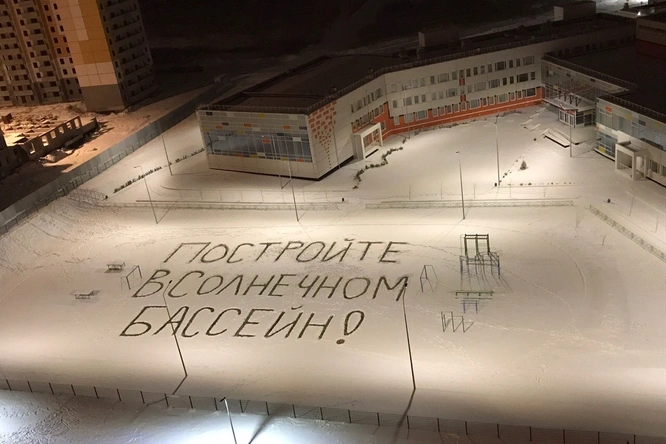 ПОСТРОЙТЕ
В СОЛНЕЧНОМ
БАССЕЙН!